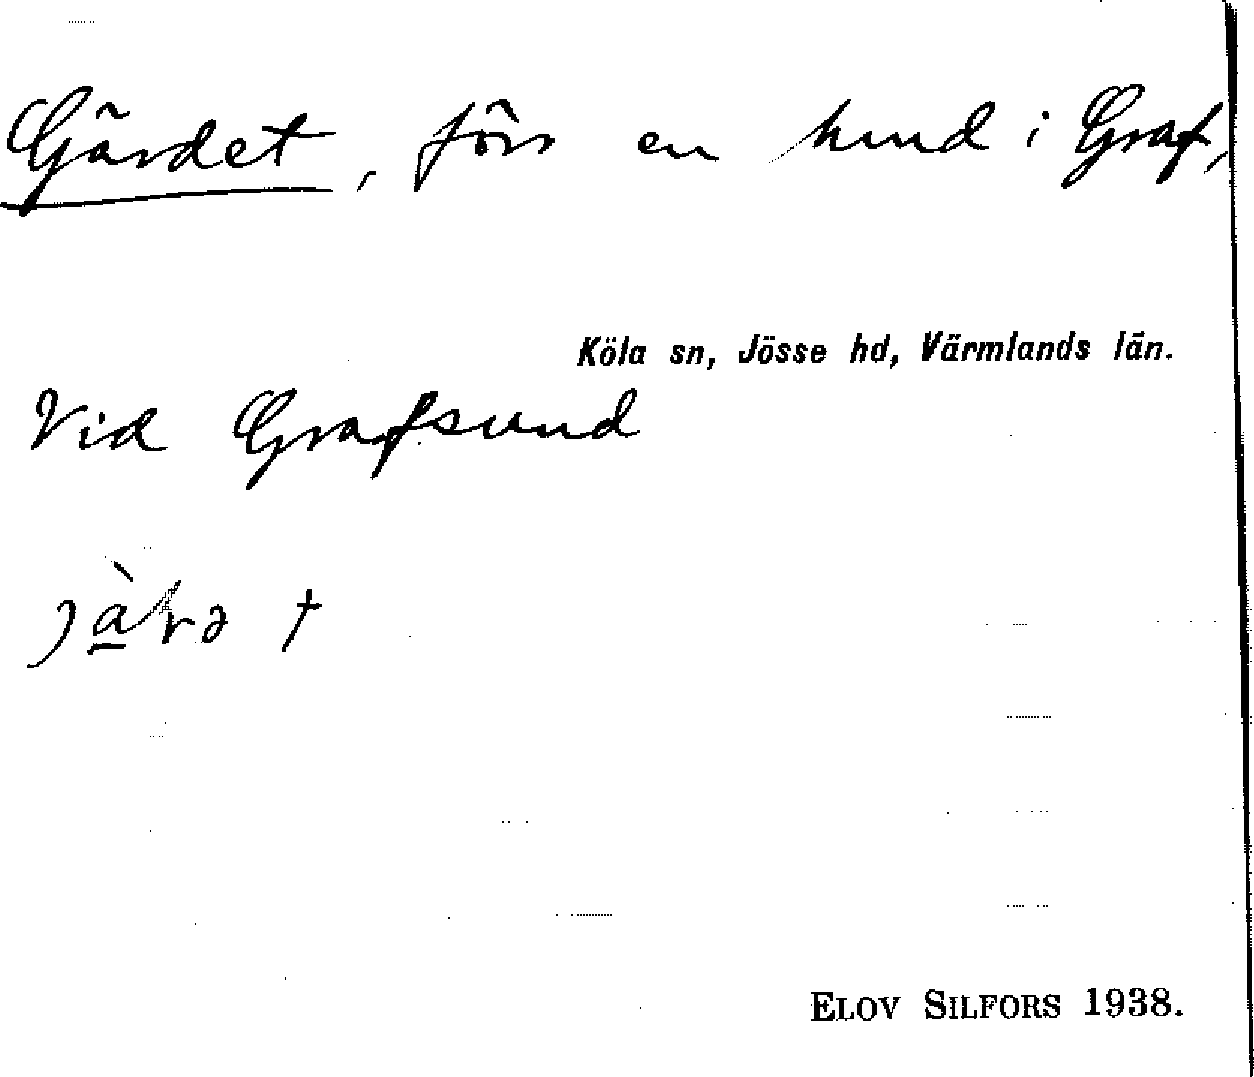 Gärdet, förr en lund i Graf,
Köla sn, Jösse hd, Värmlands län.
Vid Grafsund
ELOV SILFORS 1938.